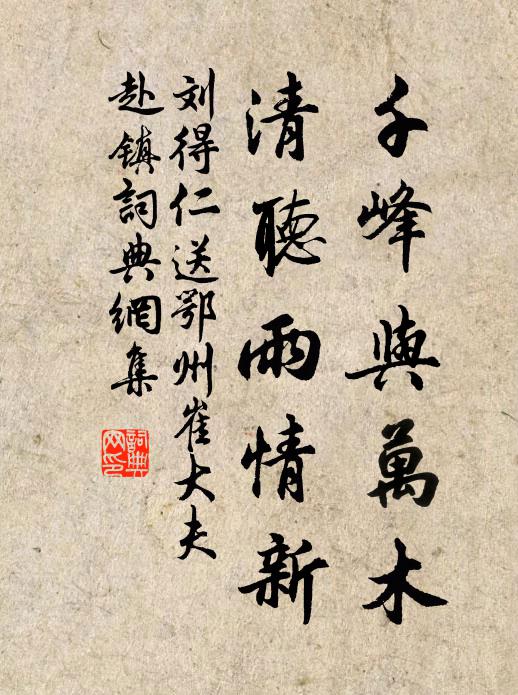 千峰與萬木
清聽雨情新
刘得仁送鄂州崔大夫
赴镇詞典網集
詞典
网印